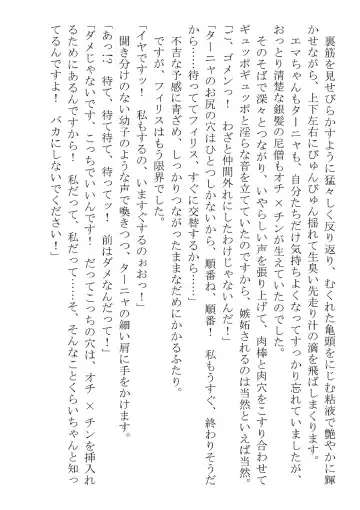 裏筋を見せびらかすように猛々しく反り返り、むくれた亀頭をにじむ粘液で艶やかに輝
かせながら、上下左右にびゅんびゅん揺れて生臭い先走り汁の滴を飛ばしまくります。
エマちゃんもターニャも、自分たちだけ気持ちよくなってすっかり忘れていましたが、
おっとり清楚な銀髪の尼僧にもオチ×チンが生えていたのでした。
そのそばで深々とつながり、いやらしい声を張り上げて、肉棒と肉穴をこすり合わせて
ギュッポギュッポと淫らな音を立てていたのですから、嫉妬されるのは当然といえば当然。
「ご、ゴメンっ！　わざと仲間外れにしたわけじゃないんだ！」
「ターニャのお尻の穴はひとつしかないから、順番ね、順番！　私もうすぐ、終わりそうだ
から……待っててフィリス、すぐに交替するから！」
不吉な予感に青ざめ、しっかりつながったままなだめにかかるふたり。
ですが、フィリスはもう限界でした。
「イヤですッ！　私もするの、いますぐするのぉおっ！」
聞き分けのない幼子のような声で喚きつつ、ターニャの細い肩に手をかけます。
「あっ⁉　待て、待て待て、待ってッ！　前はダメなんだって！」
「ダメじゃないです、こっちでいいんです！　だってこっちの穴は、オチ×チンを挿入れ
るためにあるんですから！　私だって、私だって……そ、そんなことくらいちゃんと知っ
てるんですよ！　バカにしないでください！」